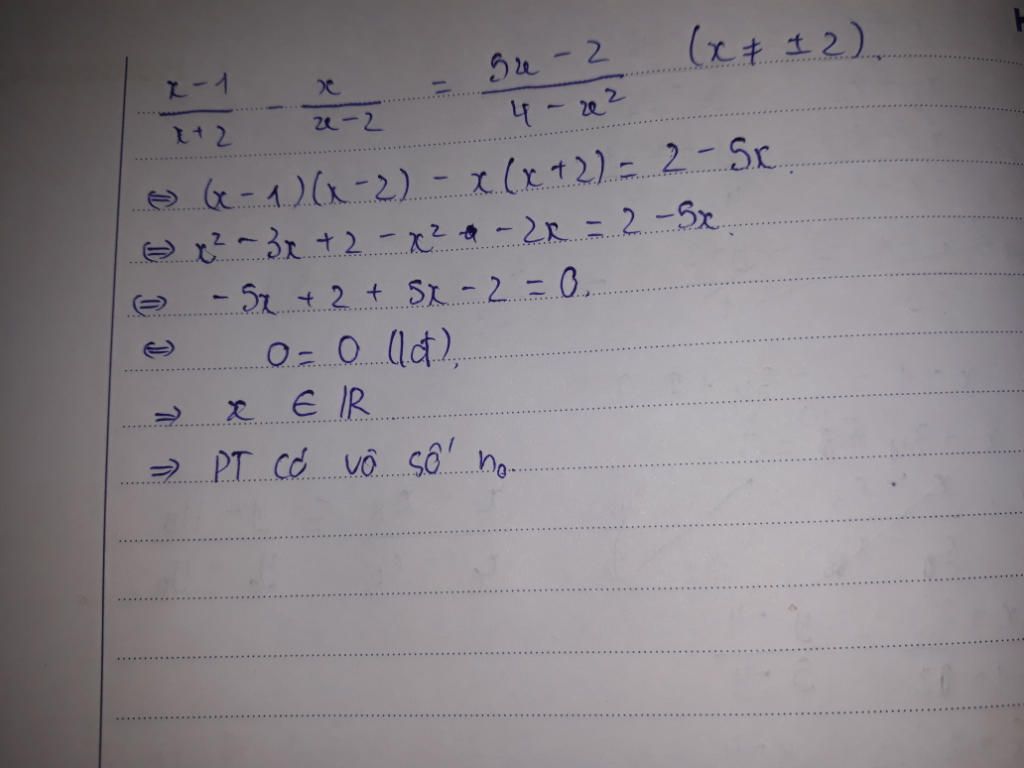 x-1/x+2 - x/x-2 = 5x-2/4-x² (x ≠ ±2).
⇔ (x-1)(x-2) - x(x+2) = 2-5x.
⇔ x² - 3x + 2 - x² - 2x = 2-5x.
⇔ -5x + 2 + 5x - 2 = 0.
⇔ 0 = 0 (lđ).
⇒ x ∈ ℝ
⇒ PT có vô số no.